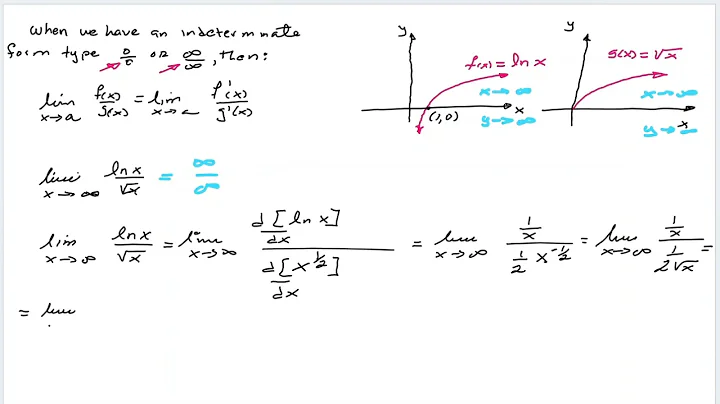 when we have an indeterminate
form type 0/0 or ∞/∞, then:
lim x→a f(x)/g(x) = lim x→a f'(x)/g'(x)
y
f(x) = ln x
x → ∞
(1,0)
x
y → ∞
y
g(x) = √x
x → ∞
x
y →
lim x→∞ ln x/√x = ∞/∞
lim x→∞ ln x/√x = lim x→∞ d/dx [ln x] / d/dx [x^1/2] = lim x→∞ (1/x)/(1/2 x^-1/2) = lim x→∞ (1/x)/(1/2√x) =
= lim